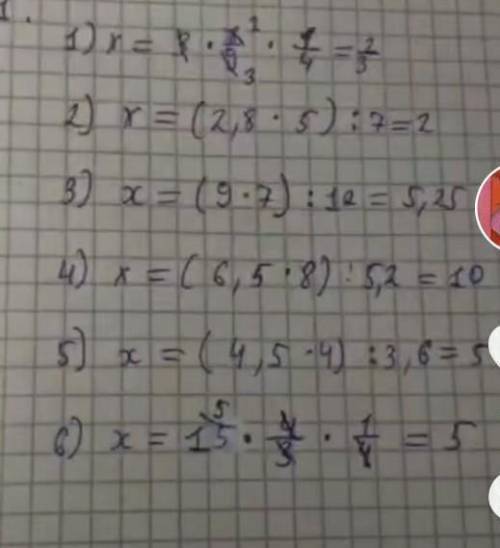 1.
1) x = 3 · 8/9 · 1/4 = 2/3
2) x = (2,8 · 5) : 7 = 2
3) x = (9 · 7) : 12 = 5,25
4) x = (6,5 · 8) : 5,2 = 10
5) x = (4,5 · 4) : 3,6 = 5
6) x = 15 · 4/3 · 1/4 = 5